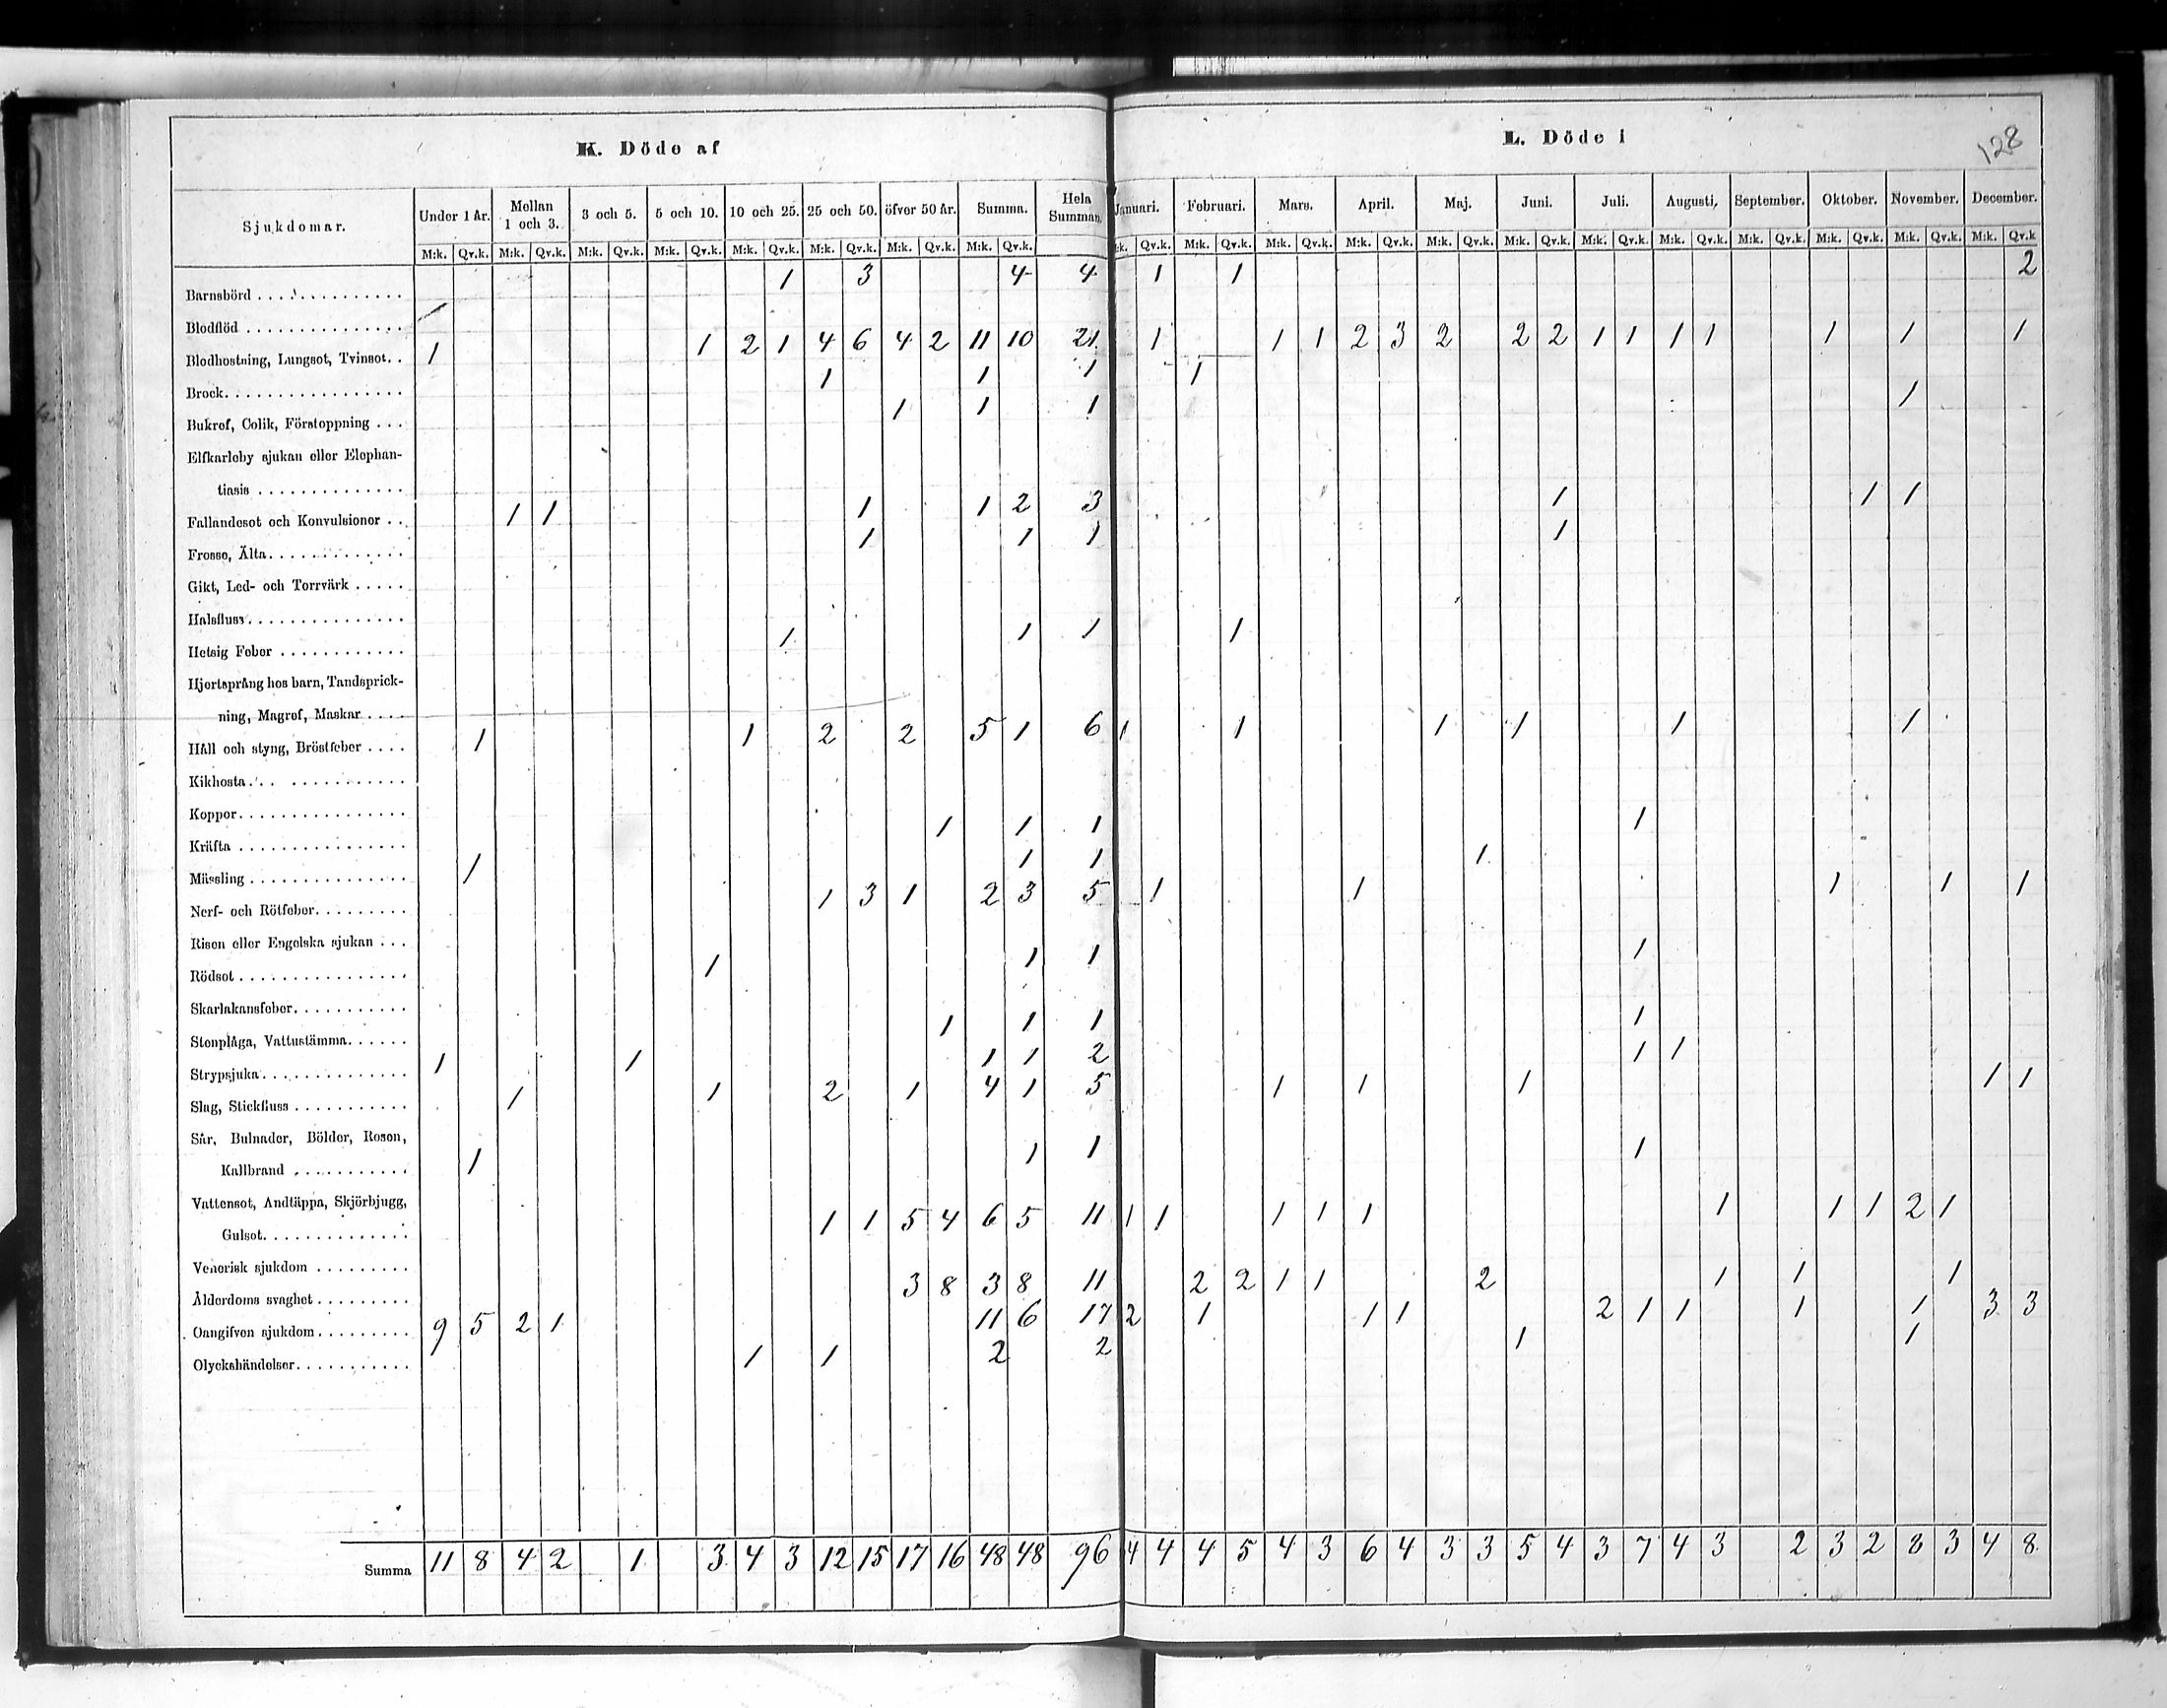 K. Döde af
L. Döde i
128
Sjukdomar. Under 1 år. Mellan 1 och 3. 3 och 5. 5 och 10. 10 och 25. 25 och 50. öfver 50 år. Summa. Hela Summan. Januari. Februari. Mars. April. Maj. Juni. Juli. Augusti. September. Oktober. November. December.
M:k. Qv.k. M:k. Qv.k. M:k. Qv.k. M:k. Qv.k. M:k. Qv.k. M:k. Qv.k. M:k. Qv.k. M:k. Qv.k. M:k. Qv.k. M:k. Qv.k. M:k. Qv.k. M:k. Qv.k. M:k. Qv.k. M:k. Qv.k. M:k. Qv.k. M:k. Qv.k. M:k. Qv.k. M:k. Qv.k. M:k. Qv.k. M:k. Qv.k
Barnsbörd 1 3 4 4 1 1 2
Blodflöd
Blodhostning, Lungsot, Tvinsot. 1 1 2 1 4 6 4 2 11 10 21 1 1 1 2 3 2 2 2 1 1 1 1 1 1 1
Brock 1 1 1 1
Bukref, Colik, Förstoppning 1 1 1 1
Elfkarleby sjukan eller Elephan-
tiasis
Fallandesot och Konvulsioner 1 1 1 1 2 3 1 1 1
Frossa, Älta 1 1 1 1
Gikt, Led- och Torrvärk
Halsfluss
Hetsig Feber 1 1 1 1
Hjertsprång hos barn, Tandsprick-
ning, Magref, Maskar
Håll och styng, Bröstfeber 1 1 2 2 5 1 6 1 1 1 1 1 1
Kikhosta
Koppor
Kräfta 1 1 1 1
Mässling 1 1 1 1
Nerf- och Rötfeber 1 3 1 2 3 5 1 1 1 1 1
Risen eller Engelska sjukan
Rödsot 1 1 1 1
Skarlakansfeber
Stenplåga, Vattustämma 1 1 1 1
Strypsjuka 1 1 1 1 2 1 1
Slag, Stickfluss 1 1 2 1 4 1 5 1 1 1 1 1
Sår, Bulnader, Bölder, Rosen,
Kallbrand 1 1 1 1
Vattensot, Andtäppa, Skjörbjugg,
Gulsot 1 1 5 4 6 5 11 1 1 1 1 1 1 1 1 2 1
Venerisk sjukdom
Ålderdoms svaghet 3 8 3 8 11 2 2 1 1 2 1 1 1
Oangifven sjukdom 9 5 2 1 11 6 17 2 1 1 1 2 1 1 1 1 3 3
Olyckshändelser 1 1 2 2 1 1
Summa 11 8 4 2 1 3 4 3 12 15 17 16 48 48 96 4 4 4 5 4 3 6 4 3 3 5 4 3 7 4 3 2 3 2 8 3 4 8